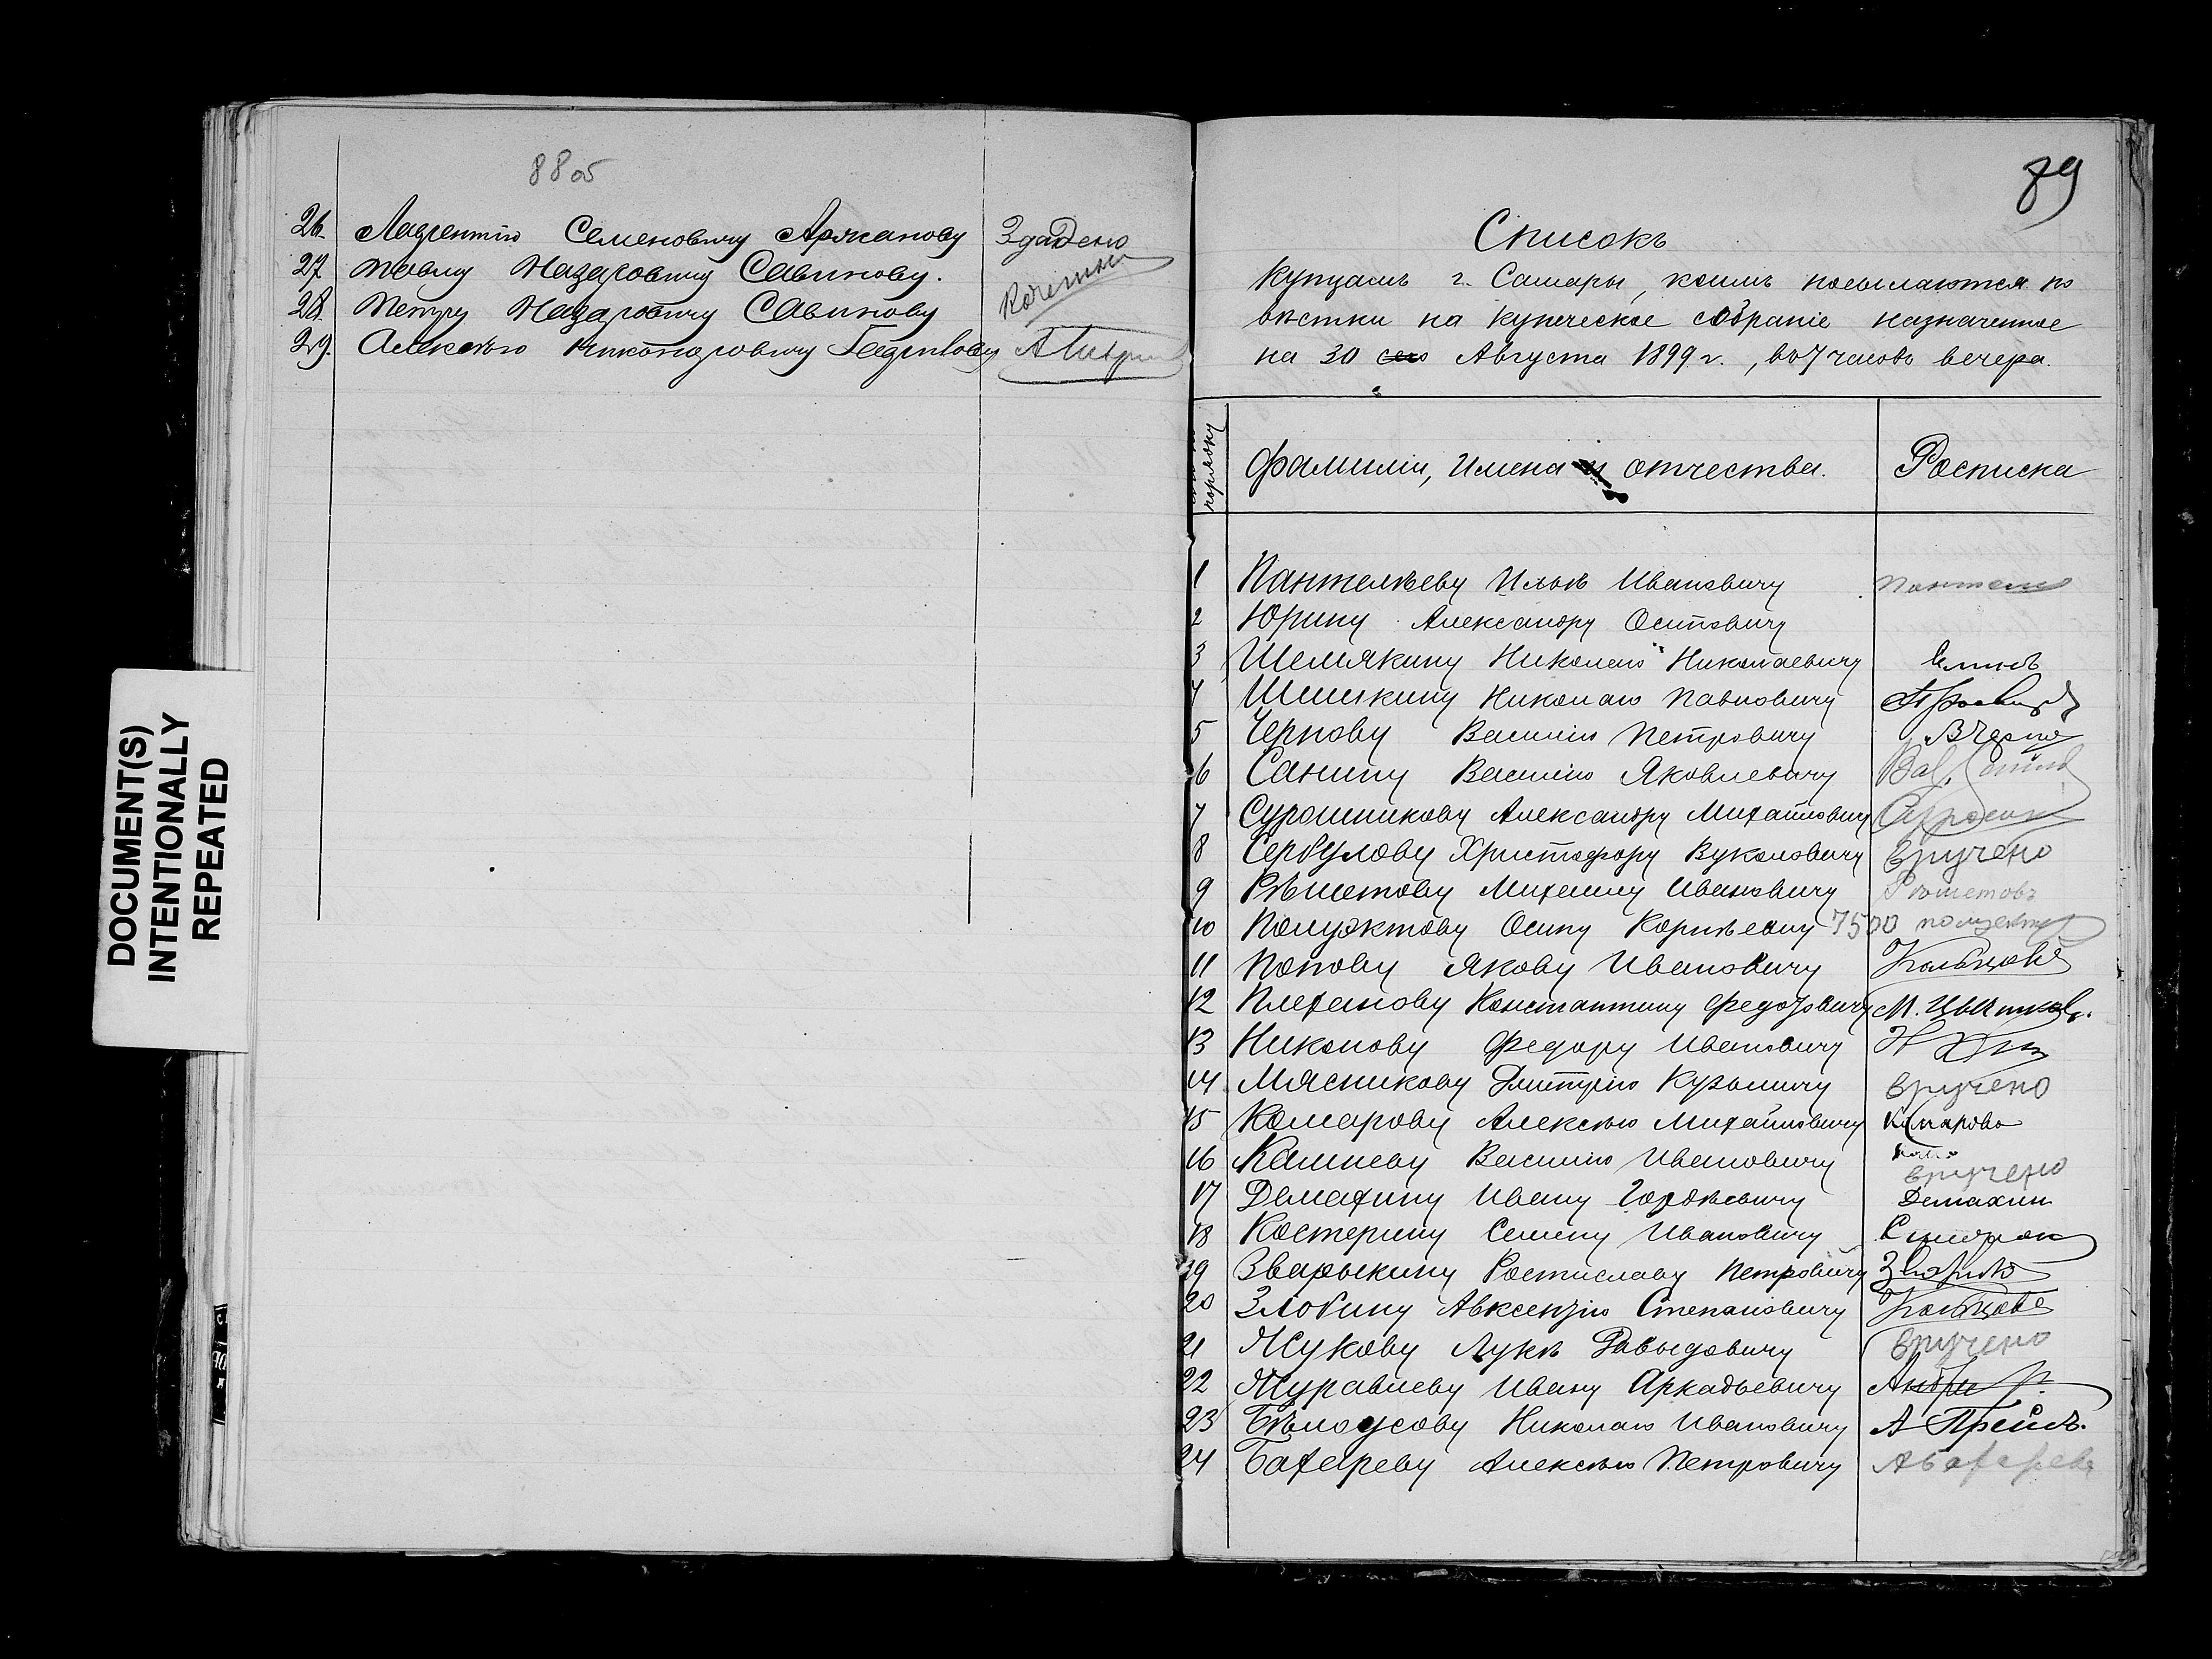 88 об
26. Лаврентію Семеновичу Аржанову Здадено
27. Павлу Назаровичу Савинову.
28. Петру Назаровичу Савинову
29. Алексѣю Никаноровичу
DOCUMENT(S)
INTENTIONALLY
REPEATED
89
Списокъ
купцамъ г. Самары, коимъ посылаются по
вѣстки на купеческое собраніе назначенное
на 30 сего Августа 1899 г., въ 7 часовъ вечера.
порядку Фамиліи, Имена и отчества. Росписка
1 Пантелѣеву Ильѣ Ивановичу
2 Юрину Александру Осиповичу
3 Шемякину Николаю Николаевичу
4 Шишкину Николаю Павловичу
5 Чернову Василію Петровичу
6 Санину Василію Яковлевичу
7 Сурошникову Александру Михайловичу
8 Сербулову Христофору Вуколовичу вручено
9 Рѣшетову Михаилу Ивановичу Рѣшетовъ
10 Полуэктову Осипу Корнѣевичу 7500
11 Попову Якову Ивановичу Кольцовъ
12 Плеханову Константину Федоровичу М.
13 Никонову Федору Ивановичу
14 Мясникову Дмитрію Кузьмичу вручено
15 Комарову Алексѣю Михайловичу Комаровъ
16 Калачеву Василію Ивановичу вручено
17 Демахину Ивану Гордѣевичу Демахин
18 Костерину Семену Ивановичу
19 Зварыкину Ростиславу Петровичу
20 Злобину Авксентію Степановичу Кольцовъ
21 Жукову Лукѣ Давыдовичу вручено
22 Журавлеву Ивану Аркадьевичу
23 Бѣлоусову Николаю Ивановичу А
24 Бахареву Алексѣю Петровичу А Бахаревъ